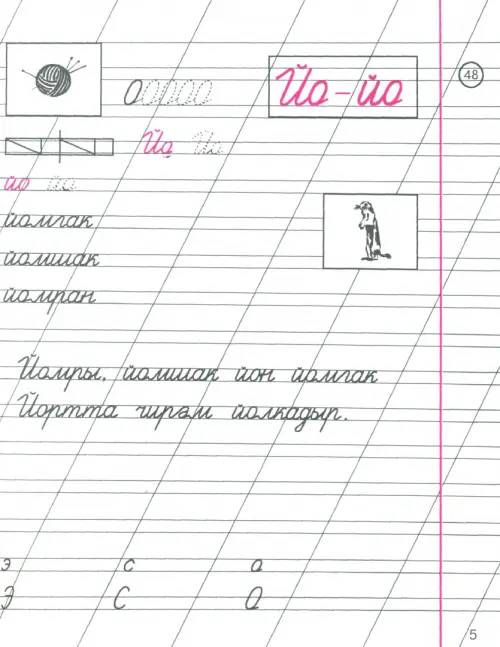 О О О О О О
Йо-йо
48
Йо Йо
йо йо
йомгак
йомшак
йомран
Йомры, йомшак йон йомгак
Йортта чирәм йолкадыр.
э с о
Э С О
5